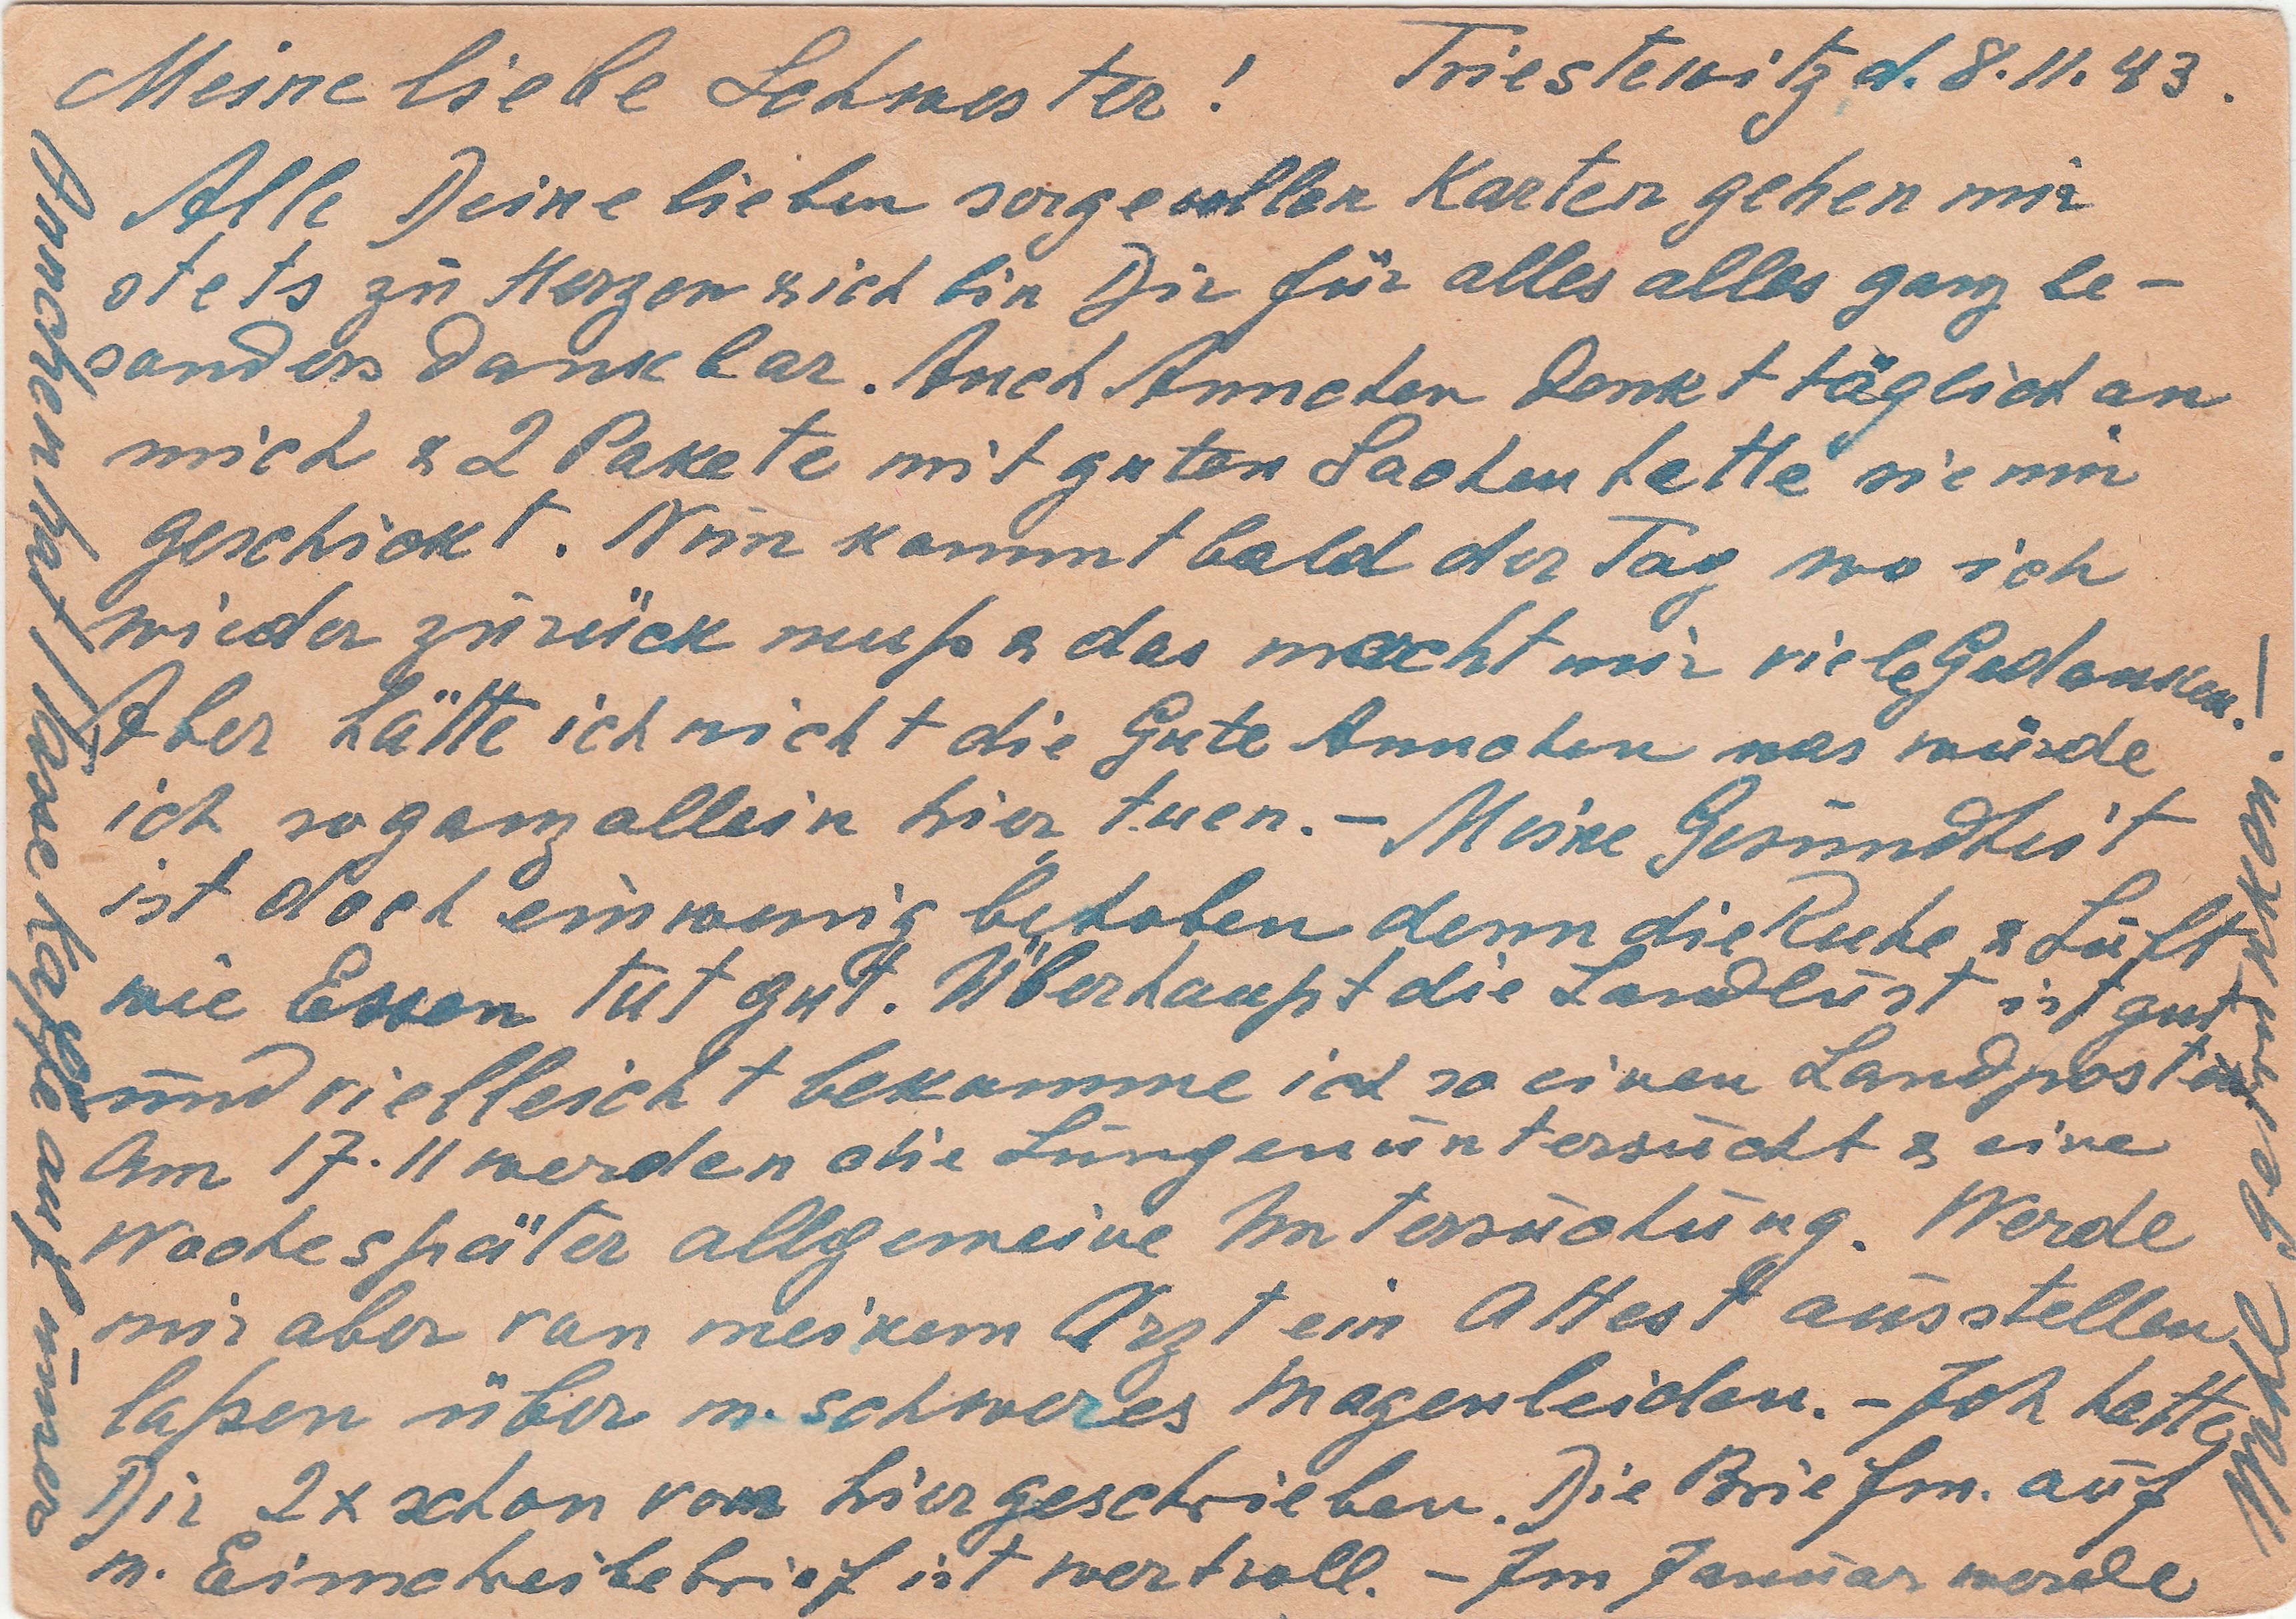 Meine liebe Schwester! Triestewitz, d. 8.11.43.
Alle Deine lieben sorgevollen Karten gehen mir
stets zu Herzen & ich bin Dir für alles alles ganz be-
sonders dankbar. Auch Annchen denkt täglich an
mich & 2 Pakete mit guten Sachen hatte sie mir
geschickt. Nun kommt bald der Tag wo ich
wieder zurück muß & das macht mir viele Gedanken.
Aber hätte ich nicht die Gute Annchen was würde
ich so ganz allein hier tuen. – Meine Gesundheit
ist doch einwenig behoben denn die Ruhe & Luft
wie Essen tut gut. Überhaupt die Landlust ist gut
und vielleicht bekomme ich so einen Landposten
Am 17.11 werden die Lungen untersucht & eine
Woche später allgemeine Untersuchung. Werde
mir aber von meinem Arzt ein Attest ausstellen
laßen über m. schweres Magenleiden. – Ich hatte
Dir 2x schon von hier geschrieben. Die Briefm. auf
m. Einschreibebrief ist wertvoll. – Im Januar werde
Annchen hat 1 Tasse Kaffe auf unser
Wohl getrunken. –